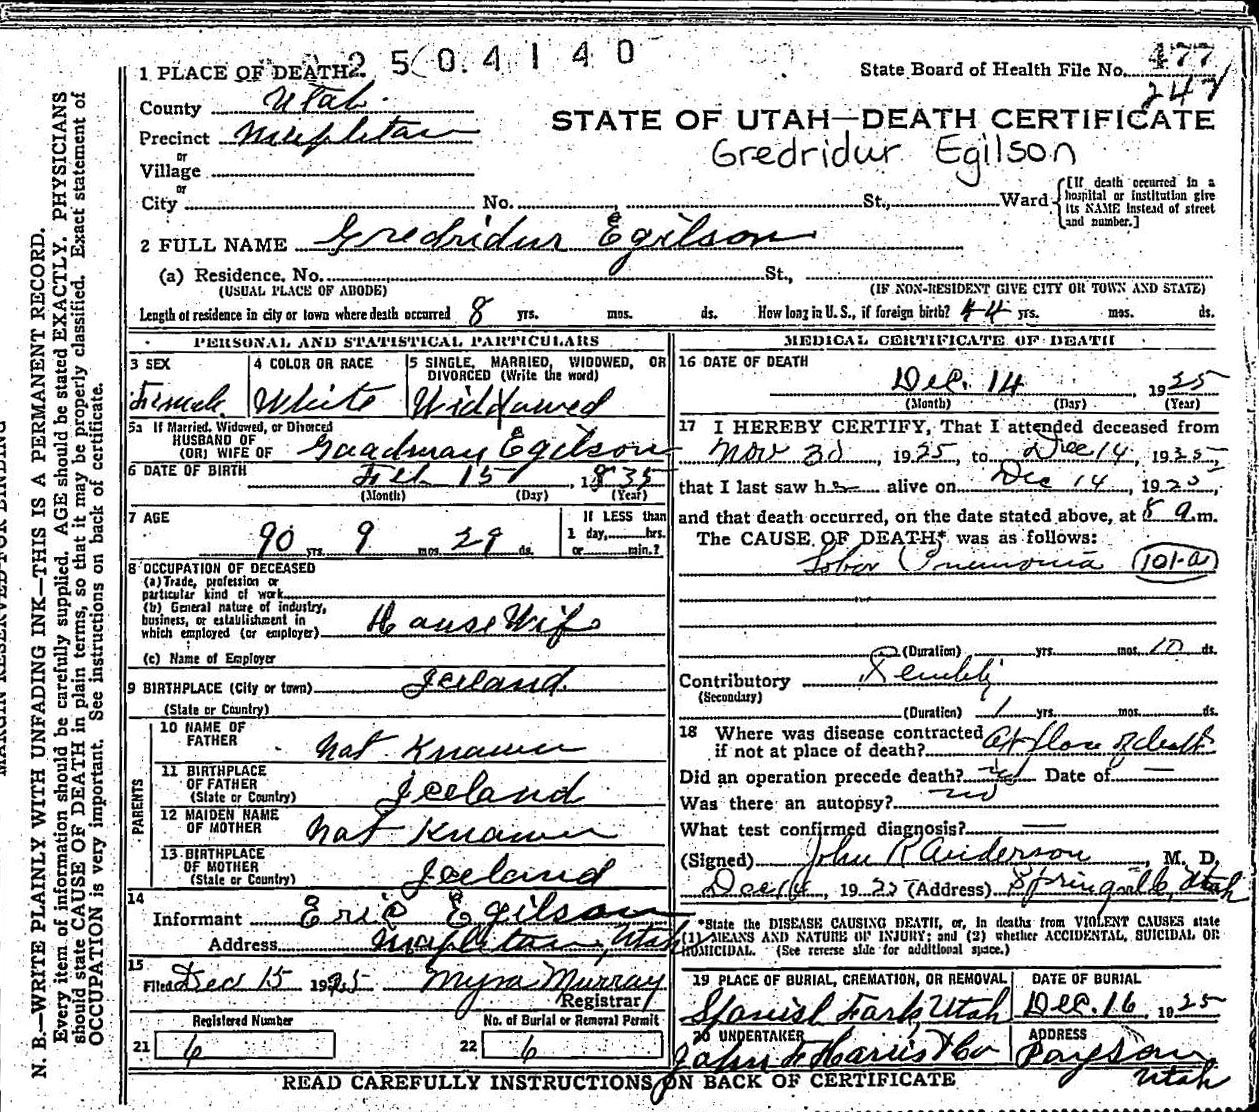 2504140
1 PLACE OF DEATH
State Board of Health File No. 477
247
County Utah
STATE OF UTAH—DEATH CERTIFICATE
Precinct Mapleton
Gredridur Egilson
or
Village
or
City No. St., Ward
[If death occurred in a hospital or institution give its NAME instead of street and number.]
2 FULL NAME Gredridur Egilson
(a) Residence, No. St.,
(USUAL PLACE OF ABODE) (IF NON-RESIDENT GIVE CITY OR TOWN AND STATE)
Length of residence in city or town where death occurred 8 yrs. mos. ds. How long in U. S., if foreign birth? 44 yrs. mos. ds.
PERSONAL AND STATISTICAL PARTICULARS
3 SEX
Female
4 COLOR OR RACE
White
5 SINGLE, MARRIED, WIDOWED, OR
DIVORCED (Write the word)
Widdowed
5a If Married, Widowed, or Divorced
HUSBAND OF
(OR) WIFE OF Gaadman Egilson
6 DATE OF BIRTH Feb 15, 1835
(Month) (Day) (Year)
7 AGE
90 yrs. 9 mos. 29 ds.
If LESS than
1 day, hrs.
or min.?
8 OCCUPATION OF DECEASED
(a) Trade, profession or
particular kind of work
(b) General nature of industry,
business, or establishment in
which employed (or employer) House Wife
(c) Name of Employer
9 BIRTHPLACE (City or town) Iceland
(State or Country)
PARENTS
10 NAME OF
FATHER Not Known
11 BIRTHPLACE
OF FATHER
(State or Country) Iceland
12 MAIDEN NAME
OF MOTHER Not Known
13 BIRTHPLACE
OF MOTHER
(State or Country) Iceland
14
Informant Eric Egilson
Address Mapleton, Utah
15
Filed Dec 15 1925 Myra Murray
Registrar
Registered Number
21 6
No. of Burial or Removal Permit
22 6
MEDICAL CERTIFICATE OF DEATH
16 DATE OF DEATH
Dec. 14, 1925
(Month) (Day) (Year)
17 I HEREBY CERTIFY, That I attended deceased from
Nov 30, 1925, to Dec 14, 1925,
that I last saw her alive on Dec 14, 1925,
and that death occurred, on the date stated above, at 8 a.m.
The CAUSE OF DEATH* was as follows:
Lobar Pnemonia 101-a
(Duration) yrs. mos. 10 ds.
Contributory Senility
(Secondary)
(Duration) 1 yrs. mos. ds.
18 Where was disease contracted
if not at place of death? at place of death
Did an operation precede death? no Date of —
Was there an autopsy? no
What test confirmed diagnosis? —
(Signed) John R Anderson, M. D.
Dec 14, 1925 (Address) Springville, Utah
*State the DISEASE CAUSING DEATH, or, in deaths from VIOLENT CAUSES state
(1) MEANS AND NATURE OF INJURY; and (2) whether ACCIDENTAL, SUICIDAL OR
HOMICIDAL. (See reverse side for additional space.)
19 PLACE OF BURIAL, CREMATION, OR REMOVAL
Spanish Fork, Utah
DATE OF BURIAL
Dec. 16, 1925
20 UNDERTAKER
John F Harris & Co
ADDRESS
Payson
Utah
READ CAREFULLY INSTRUCTIONS ON BACK OF CERTIFICATE
MARGIN RESERVED FOR BINDING
N. B.—WRITE PLAINLY WITH UNFADING INK—THIS IS A PERMANENT RECORD.
Every item of information should be carefully supplied. AGE should be stated EXACTLY. PHYSICIANS
should state CAUSE OF DEATH in plain terms, so that it may be properly classified. Exact statement of
OCCUPATION is very important. See instructions on back of certificate.